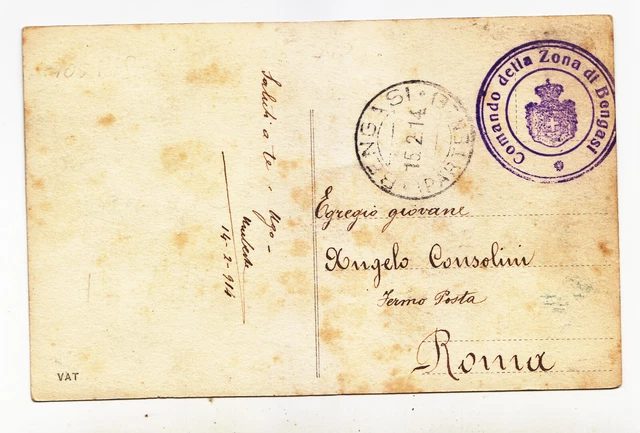 Saluti a te - Ugo -
Umberto
14-2-914
BENGASI
15.2.14
Comando della Zona di Bengasi
Egregio giovane
Angelo Consolini
Fermo Posta
Roma
VAT